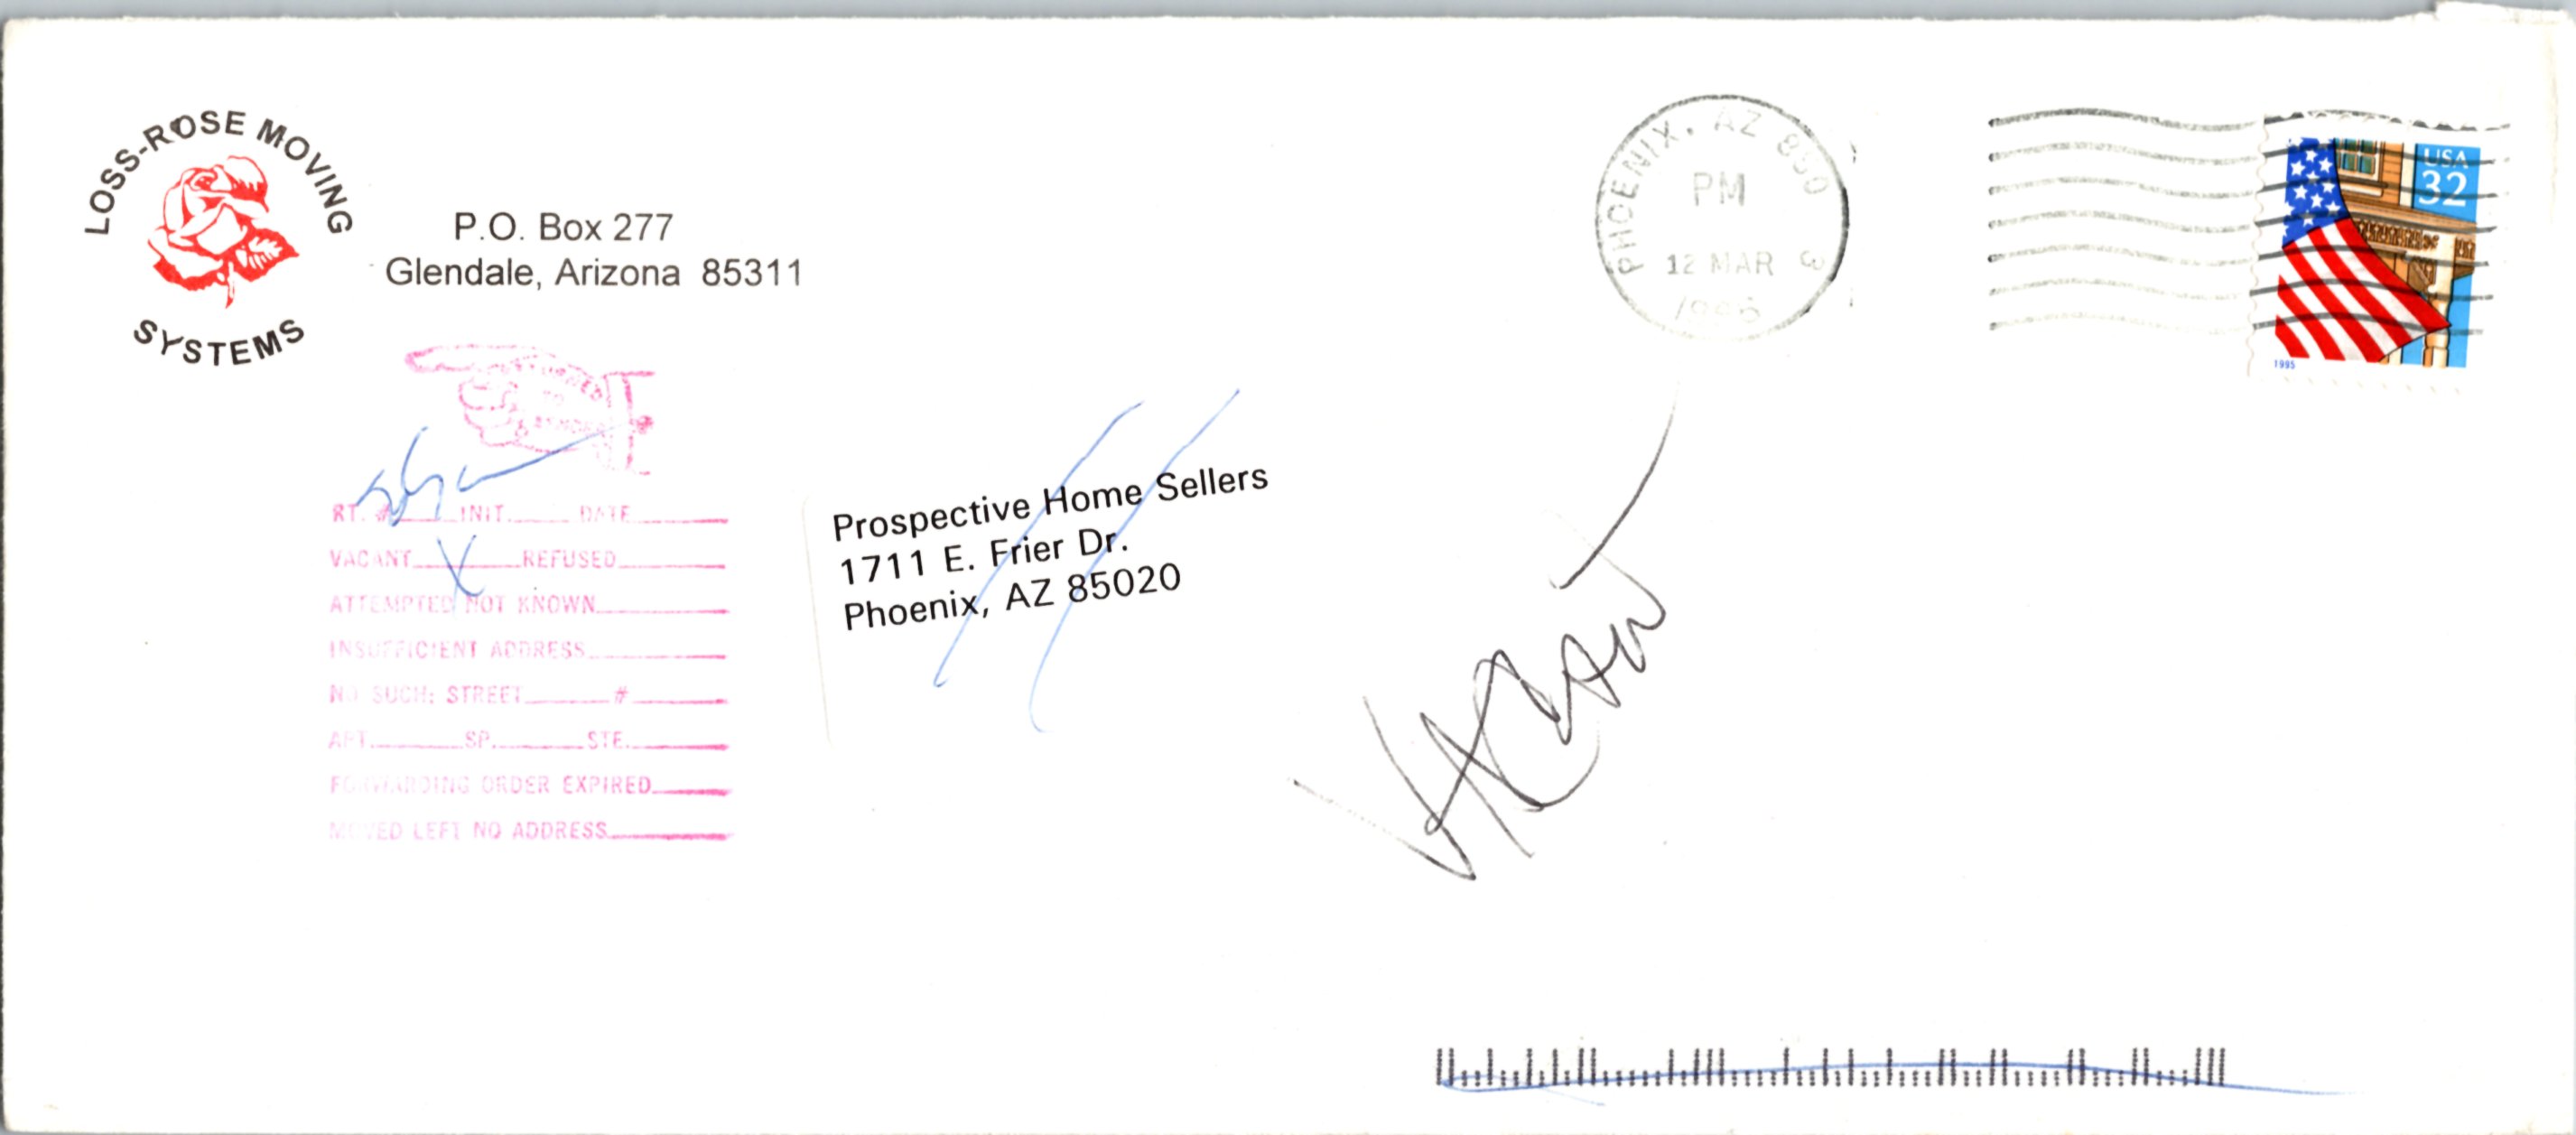 LOSS-ROSE MOVING
SYSTEMS
P.O. Box 277
Glendale, Arizona 85311
PHOENIX, AZ 850 3
PM
12 MAR
1996
USA
32
1995
RETURNED
TO
SENDER
RT. # INIT. DATE
VACANT X REFUSED
ATTEMPTED NOT KNOWN
INSUFFICIENT ADDRESS
NO SUCH: STREET #
APT. SP. STE.
FORWARDING ORDER EXPIRED
MOVED LEFT NO ADDRESS
Prospective Home Sellers
1711 E. Frier Dr.
Phoenix, AZ 85020
VACANT